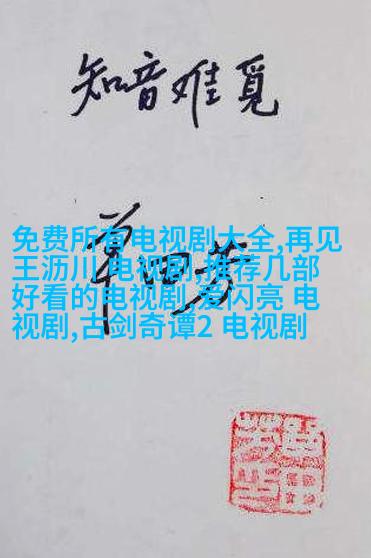 知音难觅
单田芳
免费所有电视剧大全,再见
王沥川 电视剧,推荐几部
好看的电视剧,爱闪亮 电
视剧,古剑奇谭2 电视剧